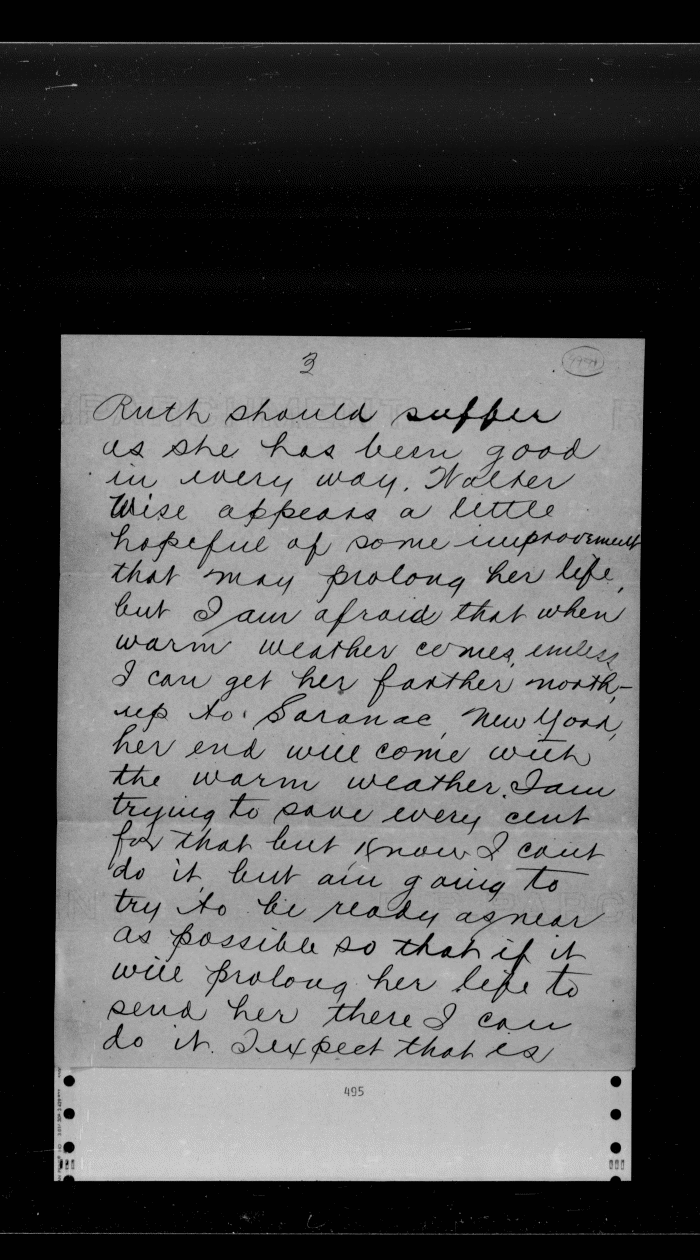 3
Ruth should suffer
as she has been good
in every way. Walter
Wise appears a little
hopeful of some improvement
that may prolong her life,
but I am afraid that when
warm weather comes, unless
I can get her farther north,-
up to Saranac, New York,
her end will come with
the warm weather. I am
trying to save every cent
for that but know I cant
do it, but am going to
try to be ready as near
as possible so that if it
will prolong her life to
send her there I can
do it. I expect that is
495